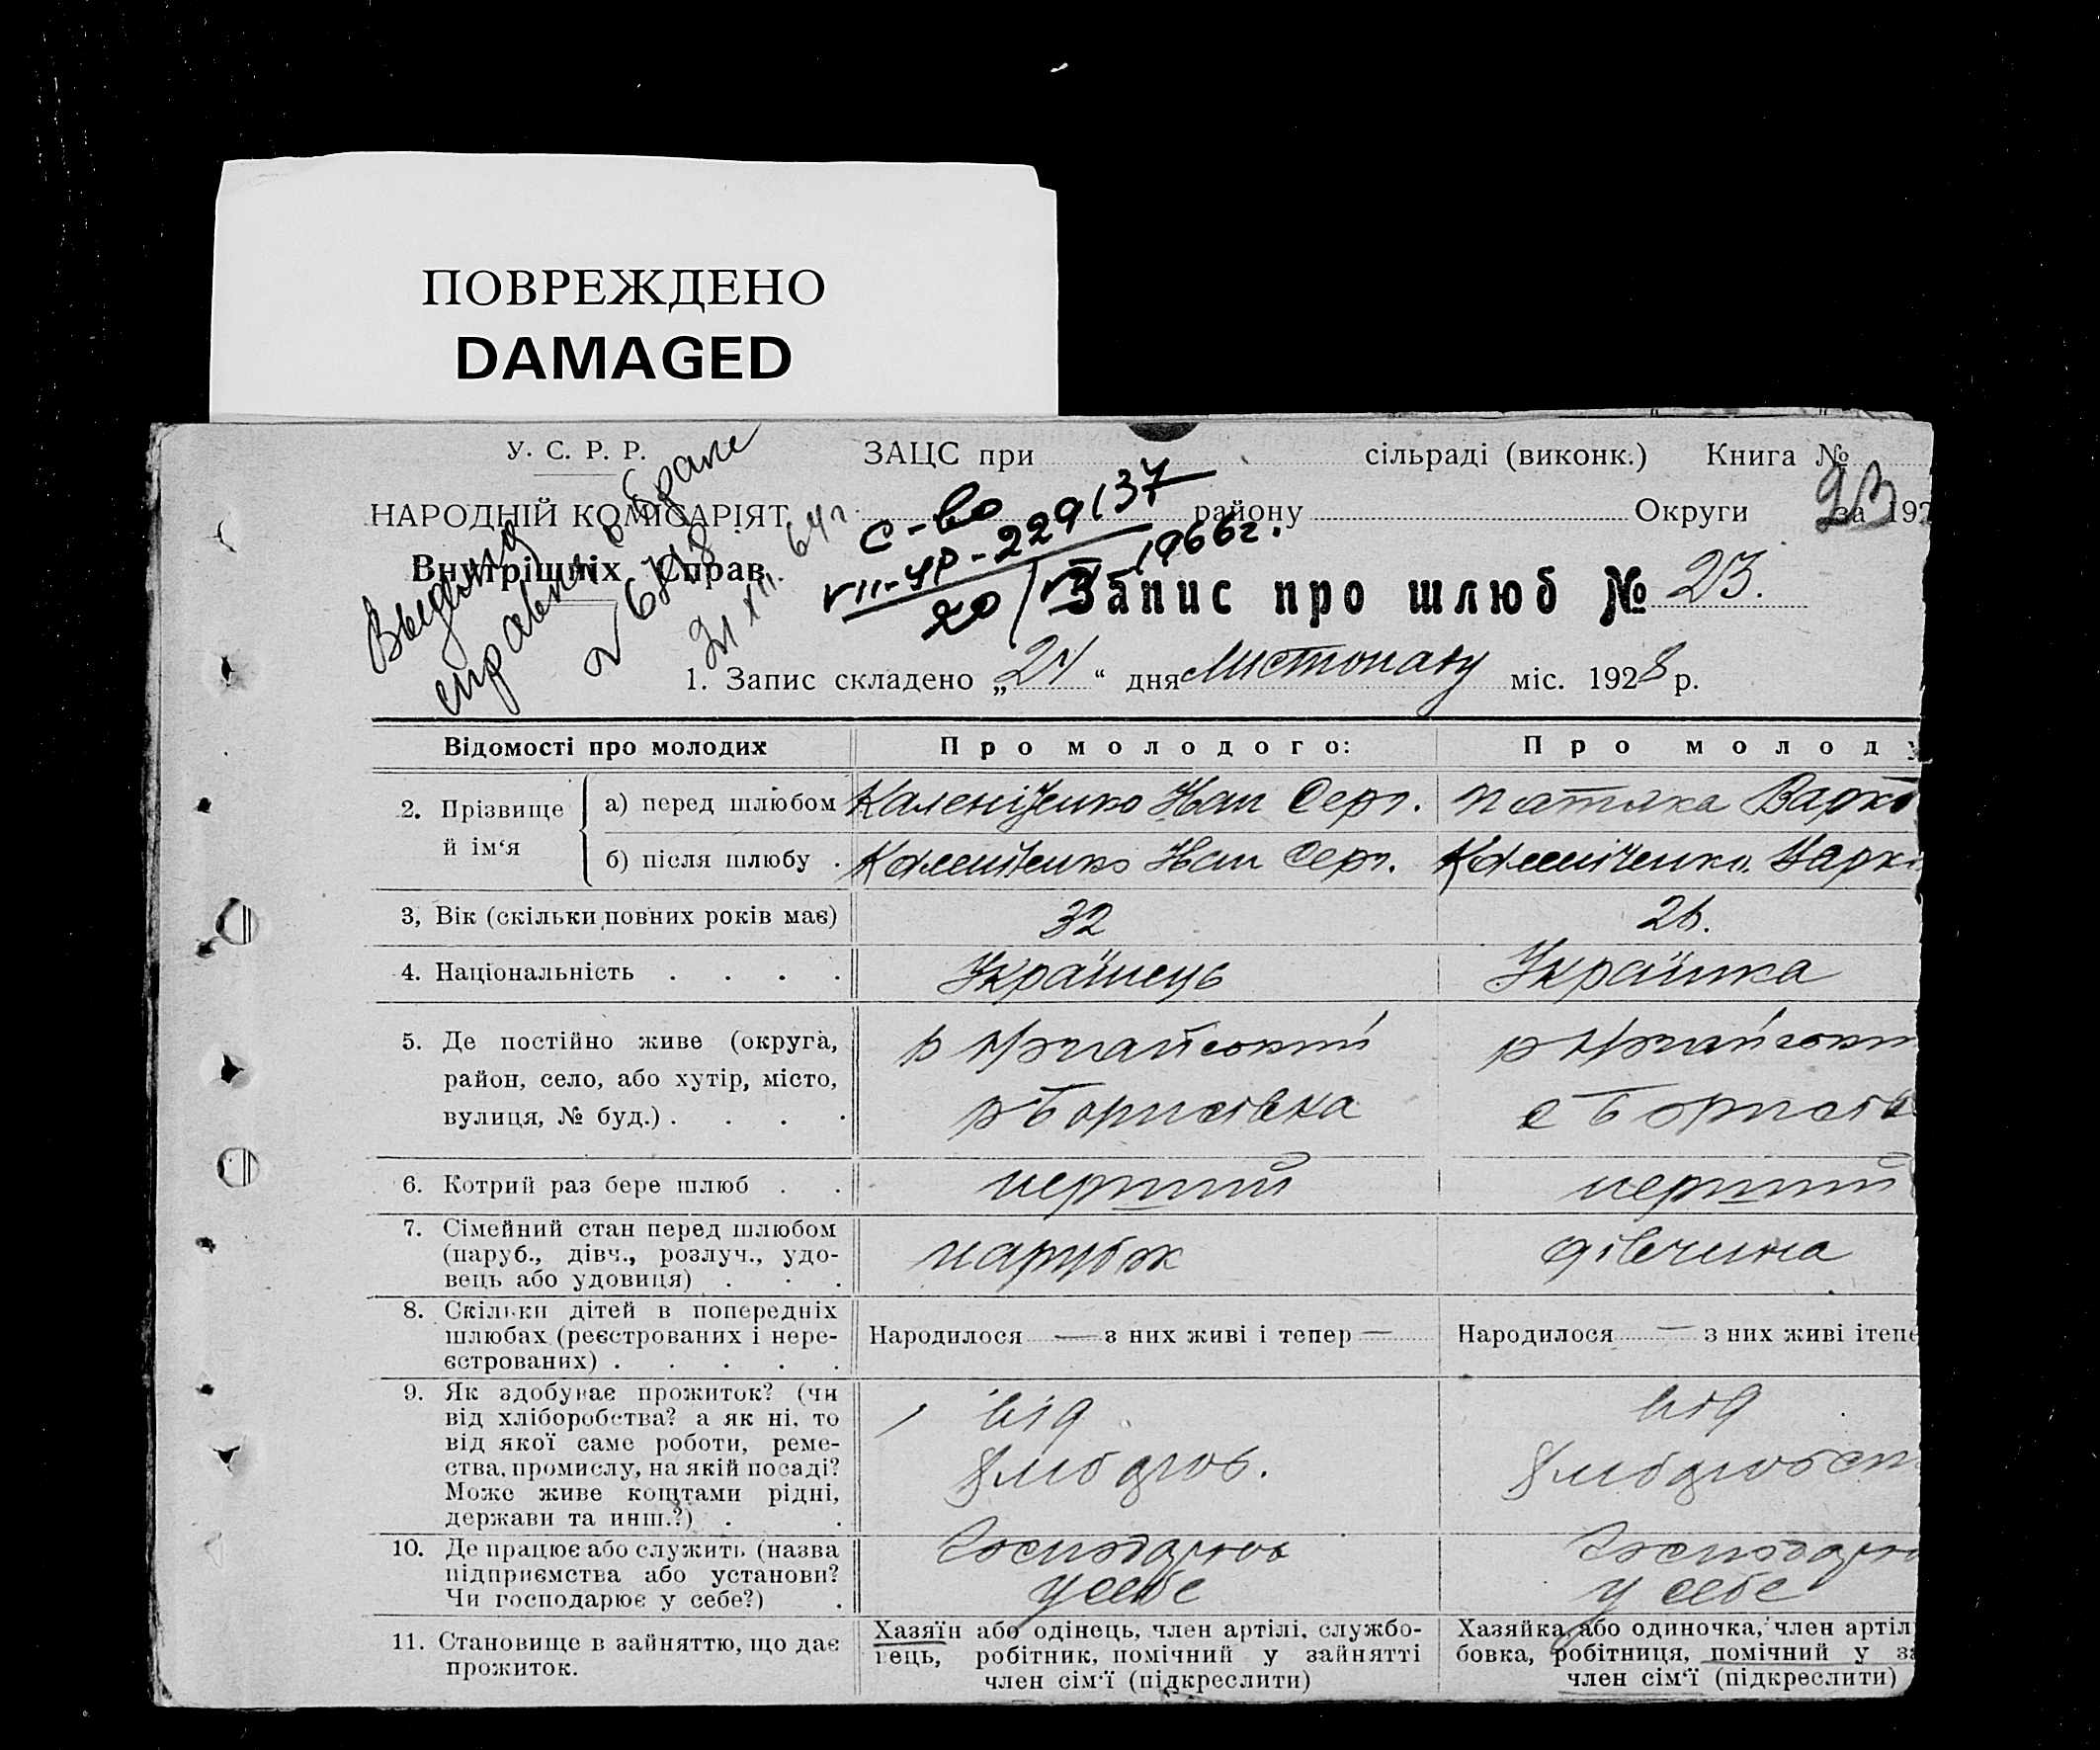 ПОВРЕЖДЕНО
DAMAGED
У. С. Р. Р.
НАРОДНІЙ КОМІСАРІЯТ
Внутрішніх Справ.
ЗАЦС при сільраді (виконк.) Книга №
району Округи за 192
справки о браке
31 XII 64 г.
с-во
VII-УР-229137
1966г.
20
Запис про шлюб № 23.
1. Запис складено „24“ дня Листопаду міс. 1928 р.
Відомості про молодих
Про молодого:
Про молоду
2. Прізвище й ім‘я
а) перед шлюбом
Сер.
б) після шлюбу .
Сер.
3, Вік (скільки повних років має)
32
26.
4. Національність . . . .
Українець
Українка
5. Де постійно живе (округа,
район, село, або хутір, місто,
вулиця, № буд.) . . . .
6. Котрий раз бере шлюб . .
перший
перший
7. Сімейний стан перед шлюбом
(паруб., дівч., розлуч., удо-
вець або удовиця) . . .
парубок
дівчина
8. Скільки дітей в попередніх
шлюбах (реєстрованих і нере-
єстрованих) . . . . .
Народилося — з них живі і тепер —
Народилося — з них живі ітепе
9. Як здобуває прожиток? (чи
від хліборобства? а як ні, то
від якої саме роботи, реме-
ства, промислу, на якій посаді?
Може живе коштами рідні,
держави та инш.?) . .
від
від
10. Де працює або служить (назва
підприємства або установи?
Чи господарює у себе?) .
у себе
у себе
11. Становище в зайняттю, що дає
прожиток.
Хазяїн або одінець, член артілі, службо-
вець, робітник, помічний у зайнятті
член сім‘ї (підкреслити)
Хазяйка або одиночка, член артіл
бовка, робітниця, помічний у за
член сім‘ї (підкреслити)